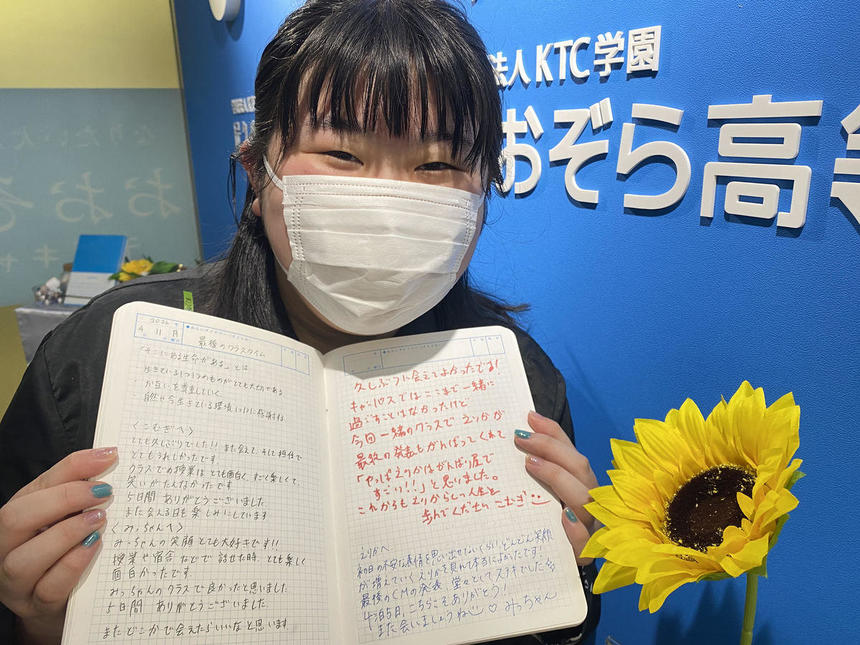 法人KTC学園
おぞら高等
なりたい大
おおぞ
キャ
2022 年
4 月 11 日 月
最後のクラスタイム
「そこにある生命がある」とは
生きている1つ1つのものがとても大切である
お互いを尊重していく
自然や今生きている環境1つ1つに感謝する
<こむぎへ>
とても久しぶりでした!!また会えて、そして担任で
とてもうれしかったです
クラスでの授業はとても面白く、すごく楽しくて、
笑いがたえなかったです
5日間 ありがとうございました
また会える日を楽しみにしています
<みっちゃんへ>
みっちゃんの笑顔とても大好きです!!
授業や宿舎などで話せた時とても楽しく
面白かったです
みっちゃんのクラスで良かったと思いました
5日間 ありがとうございました。
またどこかで会えたらいいなと思います
久しぶりに会えてよかったです!
キャンパスではここまで一緒に
過ごすことはなかったけど
今回一緒のクラスでえりかが
最後の発表もがんばってくれて
「やっぱえりかはがんばり屋で
すごい!!」と思いました。
これからもえりからしい人生を
歩んでください こむぎ
えりかへ
初日の不安な表情を思い出せないくらい、どんどん笑顔
が増えていくえりかを見れてよかったです!
最後のCMの発表、堂々としてステキでした
4泊5日、こちらこそありがとう!
また会いましょうね♡ みっちゃん